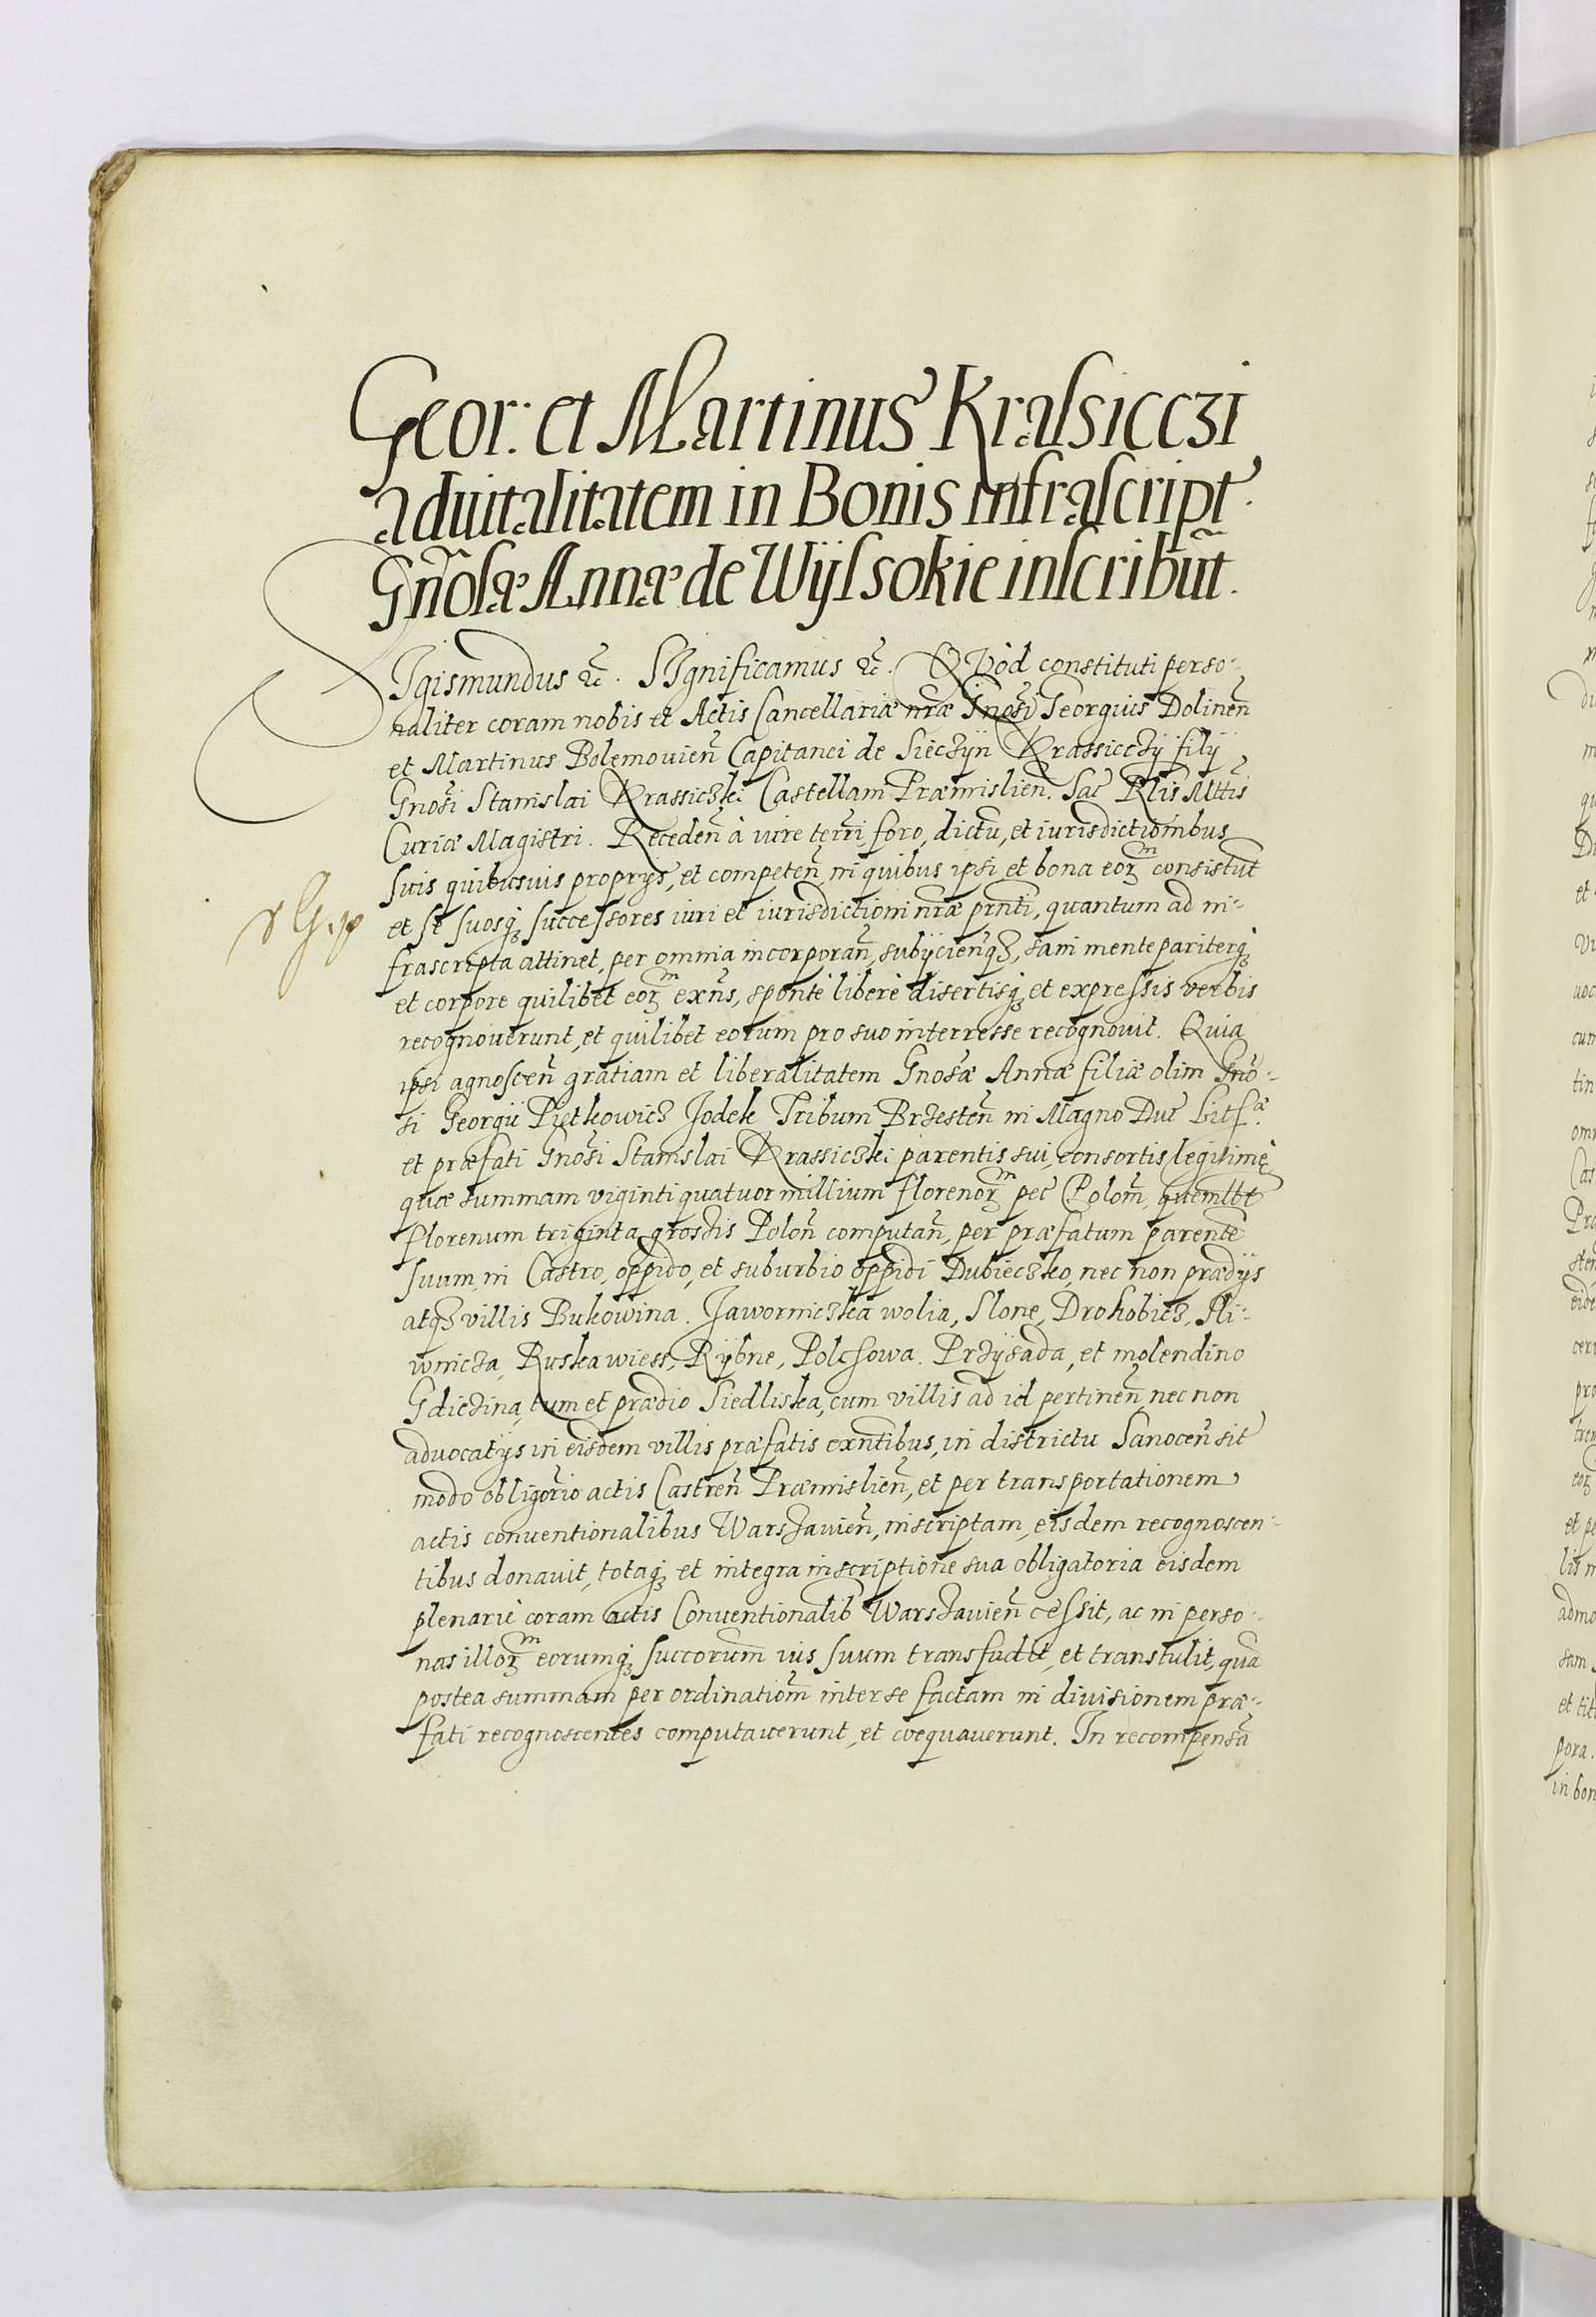 Geor: et Martinus Krassiczi
advitalitatem in Bonis infrascript.
Gñosæ Annæ de Wÿssokie inscribūt.
SIgismundus &c̃. SIgnificamus &c̃. QVòd constituti perso-
naliter coram nobis et Actis Cancellariæ nr̃æ Gnosi Georgius Dolineñ
et Martinus Bolemovieñ Capitanei de Siecżÿn Krassiccżÿ filÿ
Gnosi Stanislai Krassiczki Castellani Præmislieñ. Sac̃ Rl̃is Mttis
Curiæ Magistri. Recedeñ à iure terri, foro, dictū, et iurisdictionibus
suis quibusvis proprÿs, et competeñ in quibus ipsi et bona eoꝝ consistūt
et se suosq; successores iuri et iurisdictioni nr̃æ prñti, quantum ad in-
frascripta attinet, per omnia incorporañ, subÿcieñq3, sani mente pariterq;
et corpore quilibet eoꝝ exñs, sponte libere disertisq; et expressis verbis
recognoverunt, et quilibet eorum pro suo interresse recognovit. Quia
ipsi agnosceñ gratiam et liberalitatem Gnosæ Annæ filiæ olim Gno-
si Georgii Piętkowicz Jodek Tribum Brżesteñ in Magno Duc̃ Litt.æ
et præfati Gnosi Stanislai Krassiczki parentis sui, consortis legitimę
quæ summam viginti quatuor millium florenoꝝ pec̃ Polom̃, quemlbt
florenum triginta grossis Poloñ computañ, per præfatum parentē
suum, in Castro, oppido, et suburbio oppidi Dubieczko, nec non prædÿs
atq3 villis Bukowina. Jawornicżka wolia, Slone, Drohobicz, Hli-
wnicża, Ruska wiess, Rÿbne, Polchowa. Prżÿsada, et molendino
Gdicżina, tum et prædio Siedliska, cum villis ad id pertineñ nec non
advocatÿs in eisdem villis præfatis exñtibus, in districtu Sanoceñ sit̃
modo obligorio actis Castreñ Præmislieñ, et per transportationem
actis conventionalibus Warsżavieñ, inscriptam, eisdem recognoscen-
tibus donavit, totaq; et integra inscriptione sua obligatoria eisdem
plenarie coram actis Conventionalib Warsżavieñ cessit, ac in perso-
nas illoꝝ eorumq; succorum ius suum transfudit, et transtulit, quā
postea summam per ordinatiom̃ inter se factam in divisionem præ-
fati recognoscentes computaverunt, et coequaverunt. In recompensā